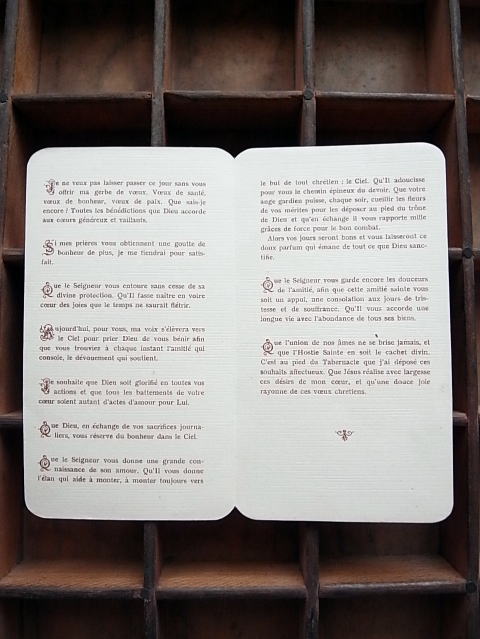 Je ne veux pas laisser passer ce jour sans vous
offrir ma gerbe de vœux. Vœux de santé,
vœux de bonheur, vœux de paix. Que sais-je
encore ? Toutes les bénédictions que Dieu accorde
aux cœurs généreux et vaillants.
Si mes prières vous obtiennent une goutte de
bonheur de plus, je me tiendrai pour satis-
fait.
Que le Seigneur vous entoure sans cesse de sa
divine protection. Qu'Il fasse naître en votre
cœur des joies que le temps ne saurait flétrir.
Aujourd'hui, pour vous, ma voix s'élèvera vers
le Ciel pour prier Dieu de vous bénir afin
que vous trouviez à chaque instant l'amitié qui
console, le dévouement qui soutient.
Je souhaite que Dieu soit glorifié en toutes vos
actions et que tous les battements de votre
cœur soient autant d'actes d'amour pour Lui.
Que Dieu, en échange de vos sacrifices journa-
liers, vous réserve du bonheur dans le Ciel.
Que le Seigneur vous donne une grande con-
naissance de son amour. Qu'Il vous donne
l'élan qui aide à monter, à monter toujours vers
le but de tout chrétien : le Ciel. Qu'Il adoucisse
pour vous le chemin épineux du devoir. Que votre
ange gardien puisse, chaque soir, cueillir les fleurs
de vos mérites pour les déposer au pied du trône
de Dieu et qu'en échange il vous rapporte mille
grâces de force pour le bon combat.
Alors vos jours seront bons et vous laisserez ce
doux parfum qui émane de tout ce que Dieu sanc-
tifie.
Que le Seigneur vous garde encore les douceurs
de l'amitié, afin que cette amitié sainte vous
soit un appui, une consolation aux jours de tris-
tesse et de souffrance. Qu'Il vous accorde une
longue vie avec l'abondance de tous ses biens.
Que l'union de nos âmes ne se brise jamais, et
que l'Hostie Sainte en soit le cachet divin.
C'est au pied du Tabernacle que j'ai déposé ces
souhaits affectueux. Que Jésus réalise avec largesse
ces désirs de mon cœur, et qu'une douce joie
rayonne de ces vœux chrétiens.